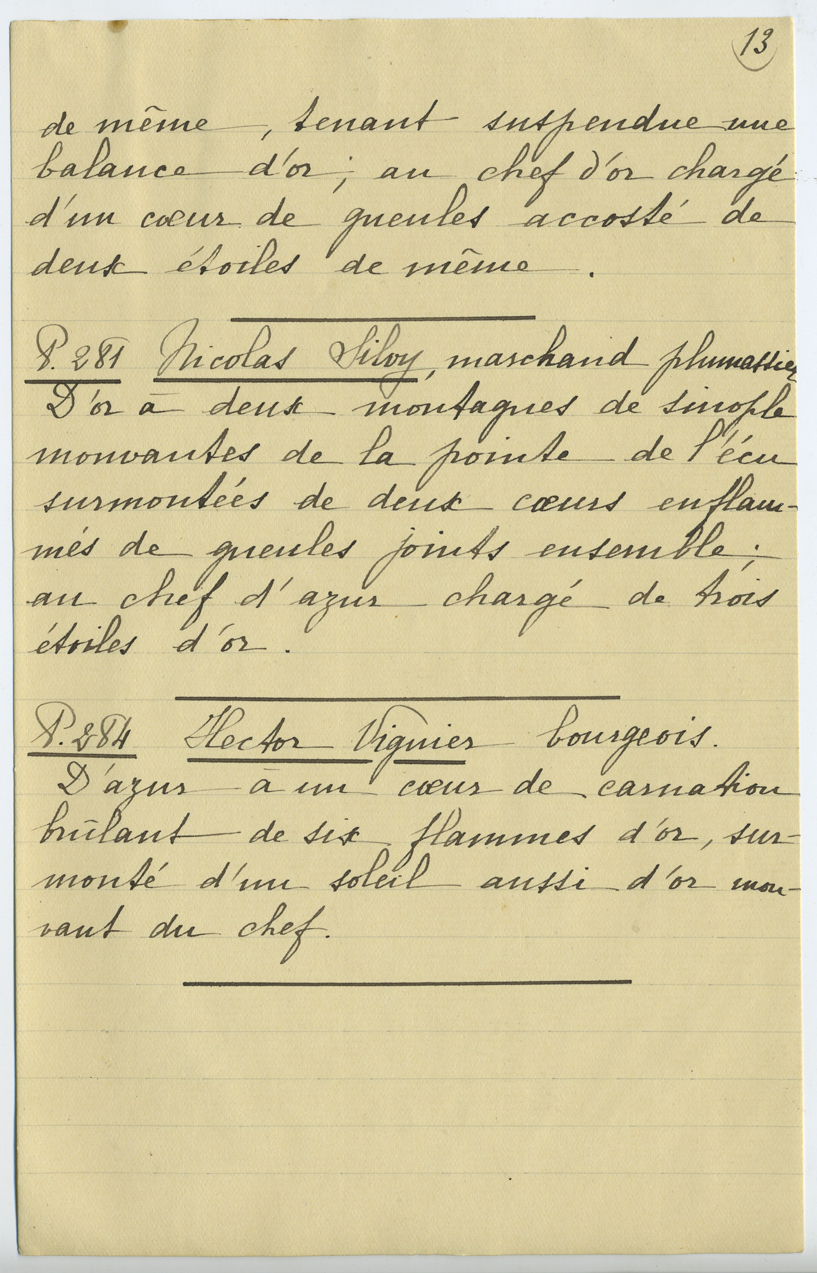 13
de même, tenant suspendue une
balance d'or; au chef d'or chargé
d'un cœur de gueules accosté de
deux étoiles de même.
P. 281 Nicolas Silvy, marchand plumassier
D'or à deux montagnes de sinople
mouvantes de la pointe de l'écu
surmontées de deux cœurs enflam-
més de gueules joints ensemble;
au chef d'azur chargé de trois
étoiles d'or.
P. 284 Hector Vignier bourgeois.
D'azur à un cœur de carnation
brûlant de six flammes d'or, sur-
monté d'un soleil aussi d'or mou-
vant du chef.